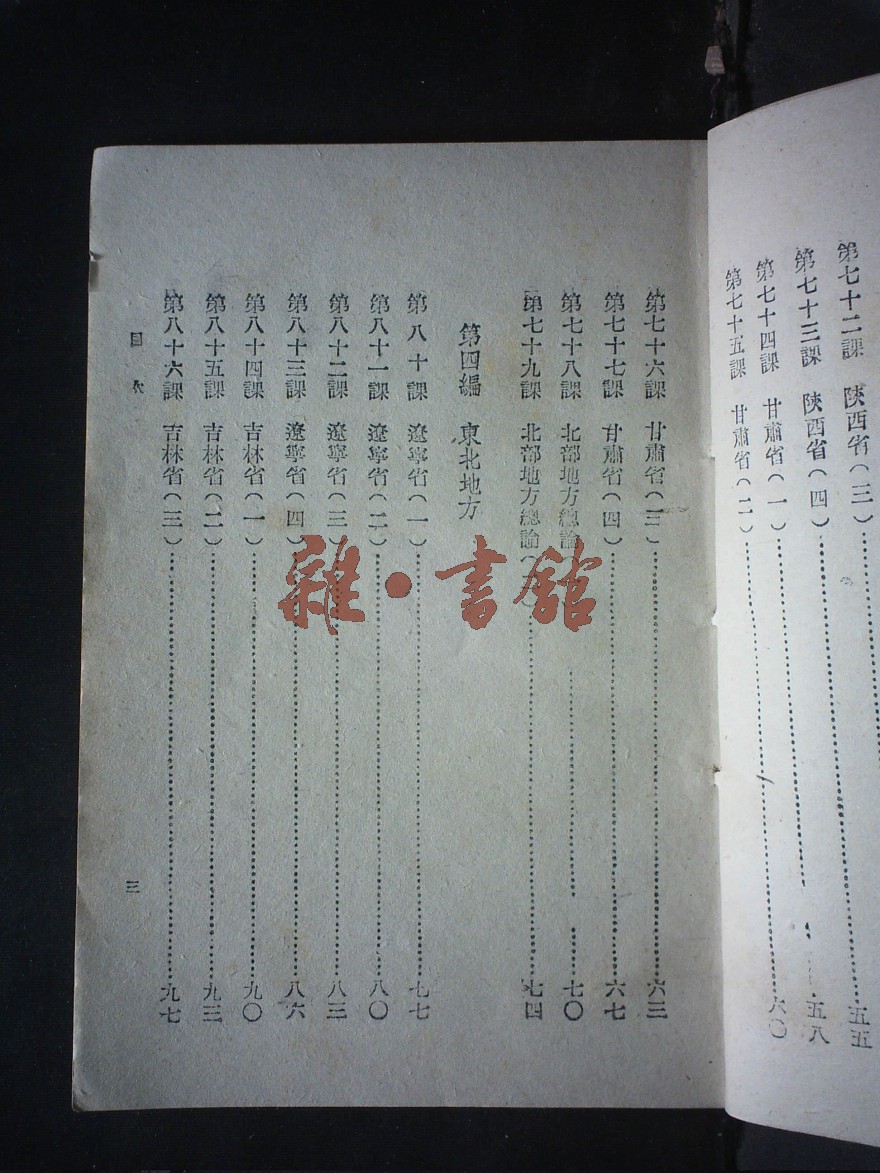 第七十二課　陝西省（三）……五五
第七十三課　陝西省（四）……五八
第七十四課　甘肅省（一）……六〇
第七十五課　甘肅省（二）……
第七十六課　甘肅省（三）……六三
第七十七課　甘肅省（四）……六七
第七十八課　北部地方總論……七〇
第七十九課　北部地方總論……七四
第四編　東北地方
第八十課　遼寧省（一）……七七
第八十一課　遼寧省（二）……八〇
第八十二課　遼寧省（三）……八三
第八十三課　遼寧省（四）……八六
第八十四課　吉林省（一）……九〇
第八十五課　吉林省（二）……九三
第八十六課　吉林省（三）……九七
目次
三
雜·書館